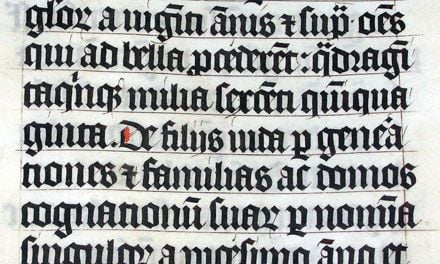 gloꝝ a uigīti ānis ⁊ supᷓ. oēs
qui ad bella ꝓcederēt : qᷓdragī
taqͥnqꝫ milia sexcēti quīqua
ginta. De filijs iuda ꝑ genera
tiones ⁊ familias ac domos
cognationū suaꝝ ꝑ nomīa
singuloꝝ a uicesimo āno et